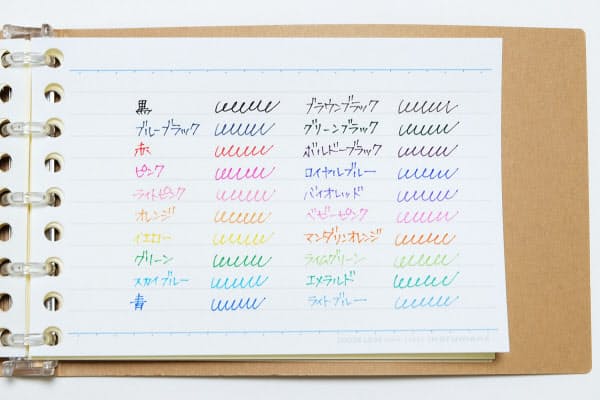 黒 ブラウンブラック
ブルーブラック グリーンブラック
赤 ボルドーブラック
ピンク ロイヤルブルー
ライトピンク バイオレッド
オレンジ ベビーピンク
イエロー マンダリンオレンジ
グリーン ライムグリーン
スカイブルー エメラルド
青 ライトブルー